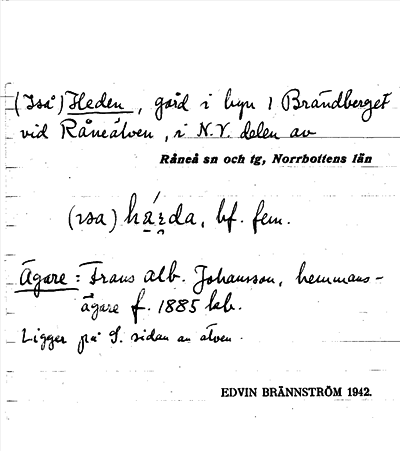 (Iså) Heden, gård i byn Brändberget
vid Råneälven, i N.V. delen av
Råneå sn och tg, Norrbottens län
bf. fem.
Ägare: Frans Alb. Johansson, hemmans-
ägare f. 1885
Ligger på S. sidan av älven.
EDVIN BRÄNNSTRÖM 1942.